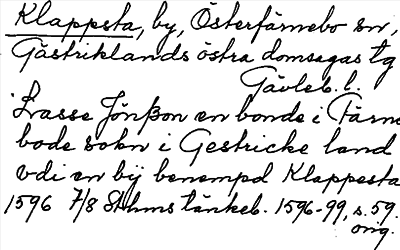 Klappesta, by, Österfärnebo sn,
Gästriklands östra domsagas tg
Gävleb. l.
Lasse Jönßon en bonde i Färne
bode sokn i Gestricke land
vdi en bÿ benempd Klappesta
1596 7/8 Sthms tänkeb. 1596-99, s. 59.
orig.